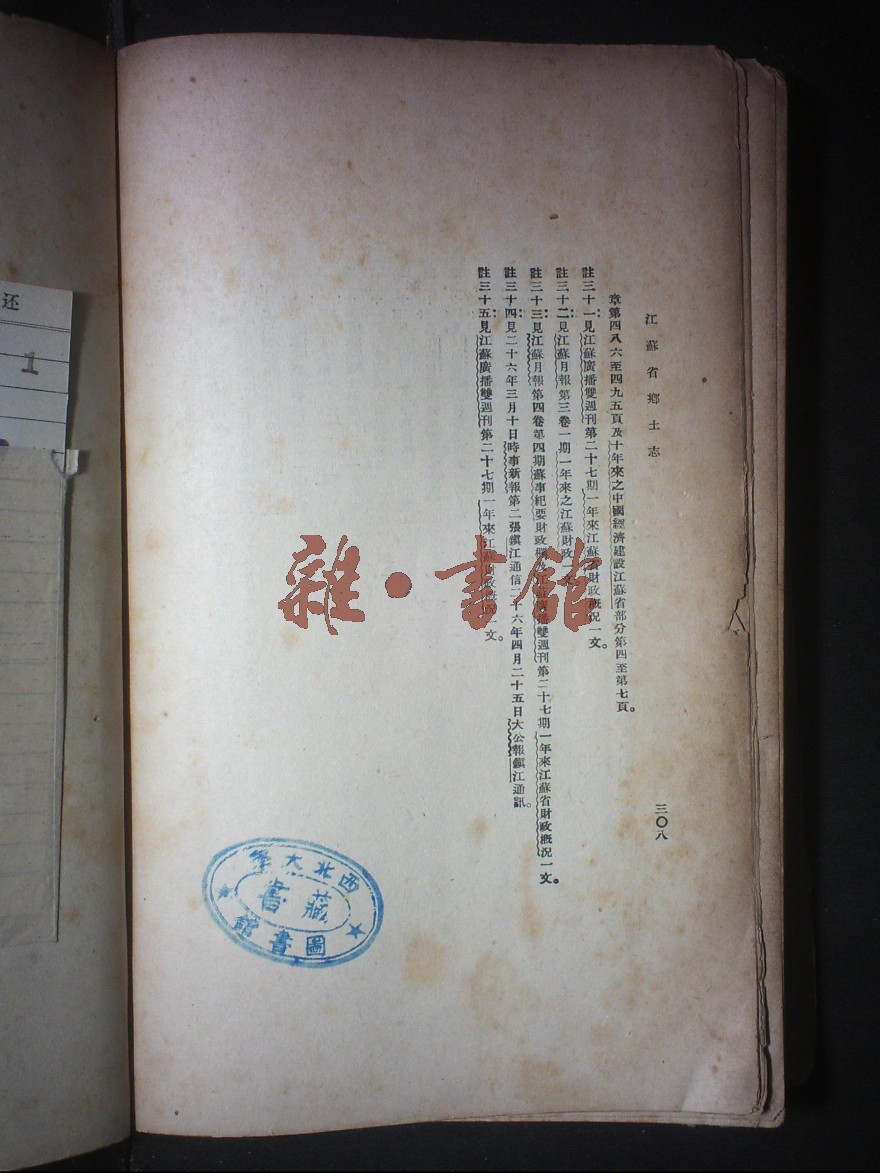 江蘇省鄉土志
三〇八
章第四八六至四九五頁及十年來之中國經濟建設江蘇省部分第四至第七頁。
註三十一：見江蘇廣播雙週刊第二十七期一年來江蘇省財政概況一文。
註三十二：見江蘇月報第三卷一期一年來之江蘇財政一文。
註三十三：見江蘇月報第四卷第四期蘇事紀要財政欄及江蘇廣播雙週刊第二十七期一年來江蘇省財政概況一文。
註三十四：見二十六年三月十日時事新報第二張鎮江通信二十六年四月二十五日大公報鎮江通訊。
註三十五：見江蘇廣播雙週刊第二十七期一年來江蘇財政概況一文。
雜·書館
西北大學
藏書
圖書館
还
1